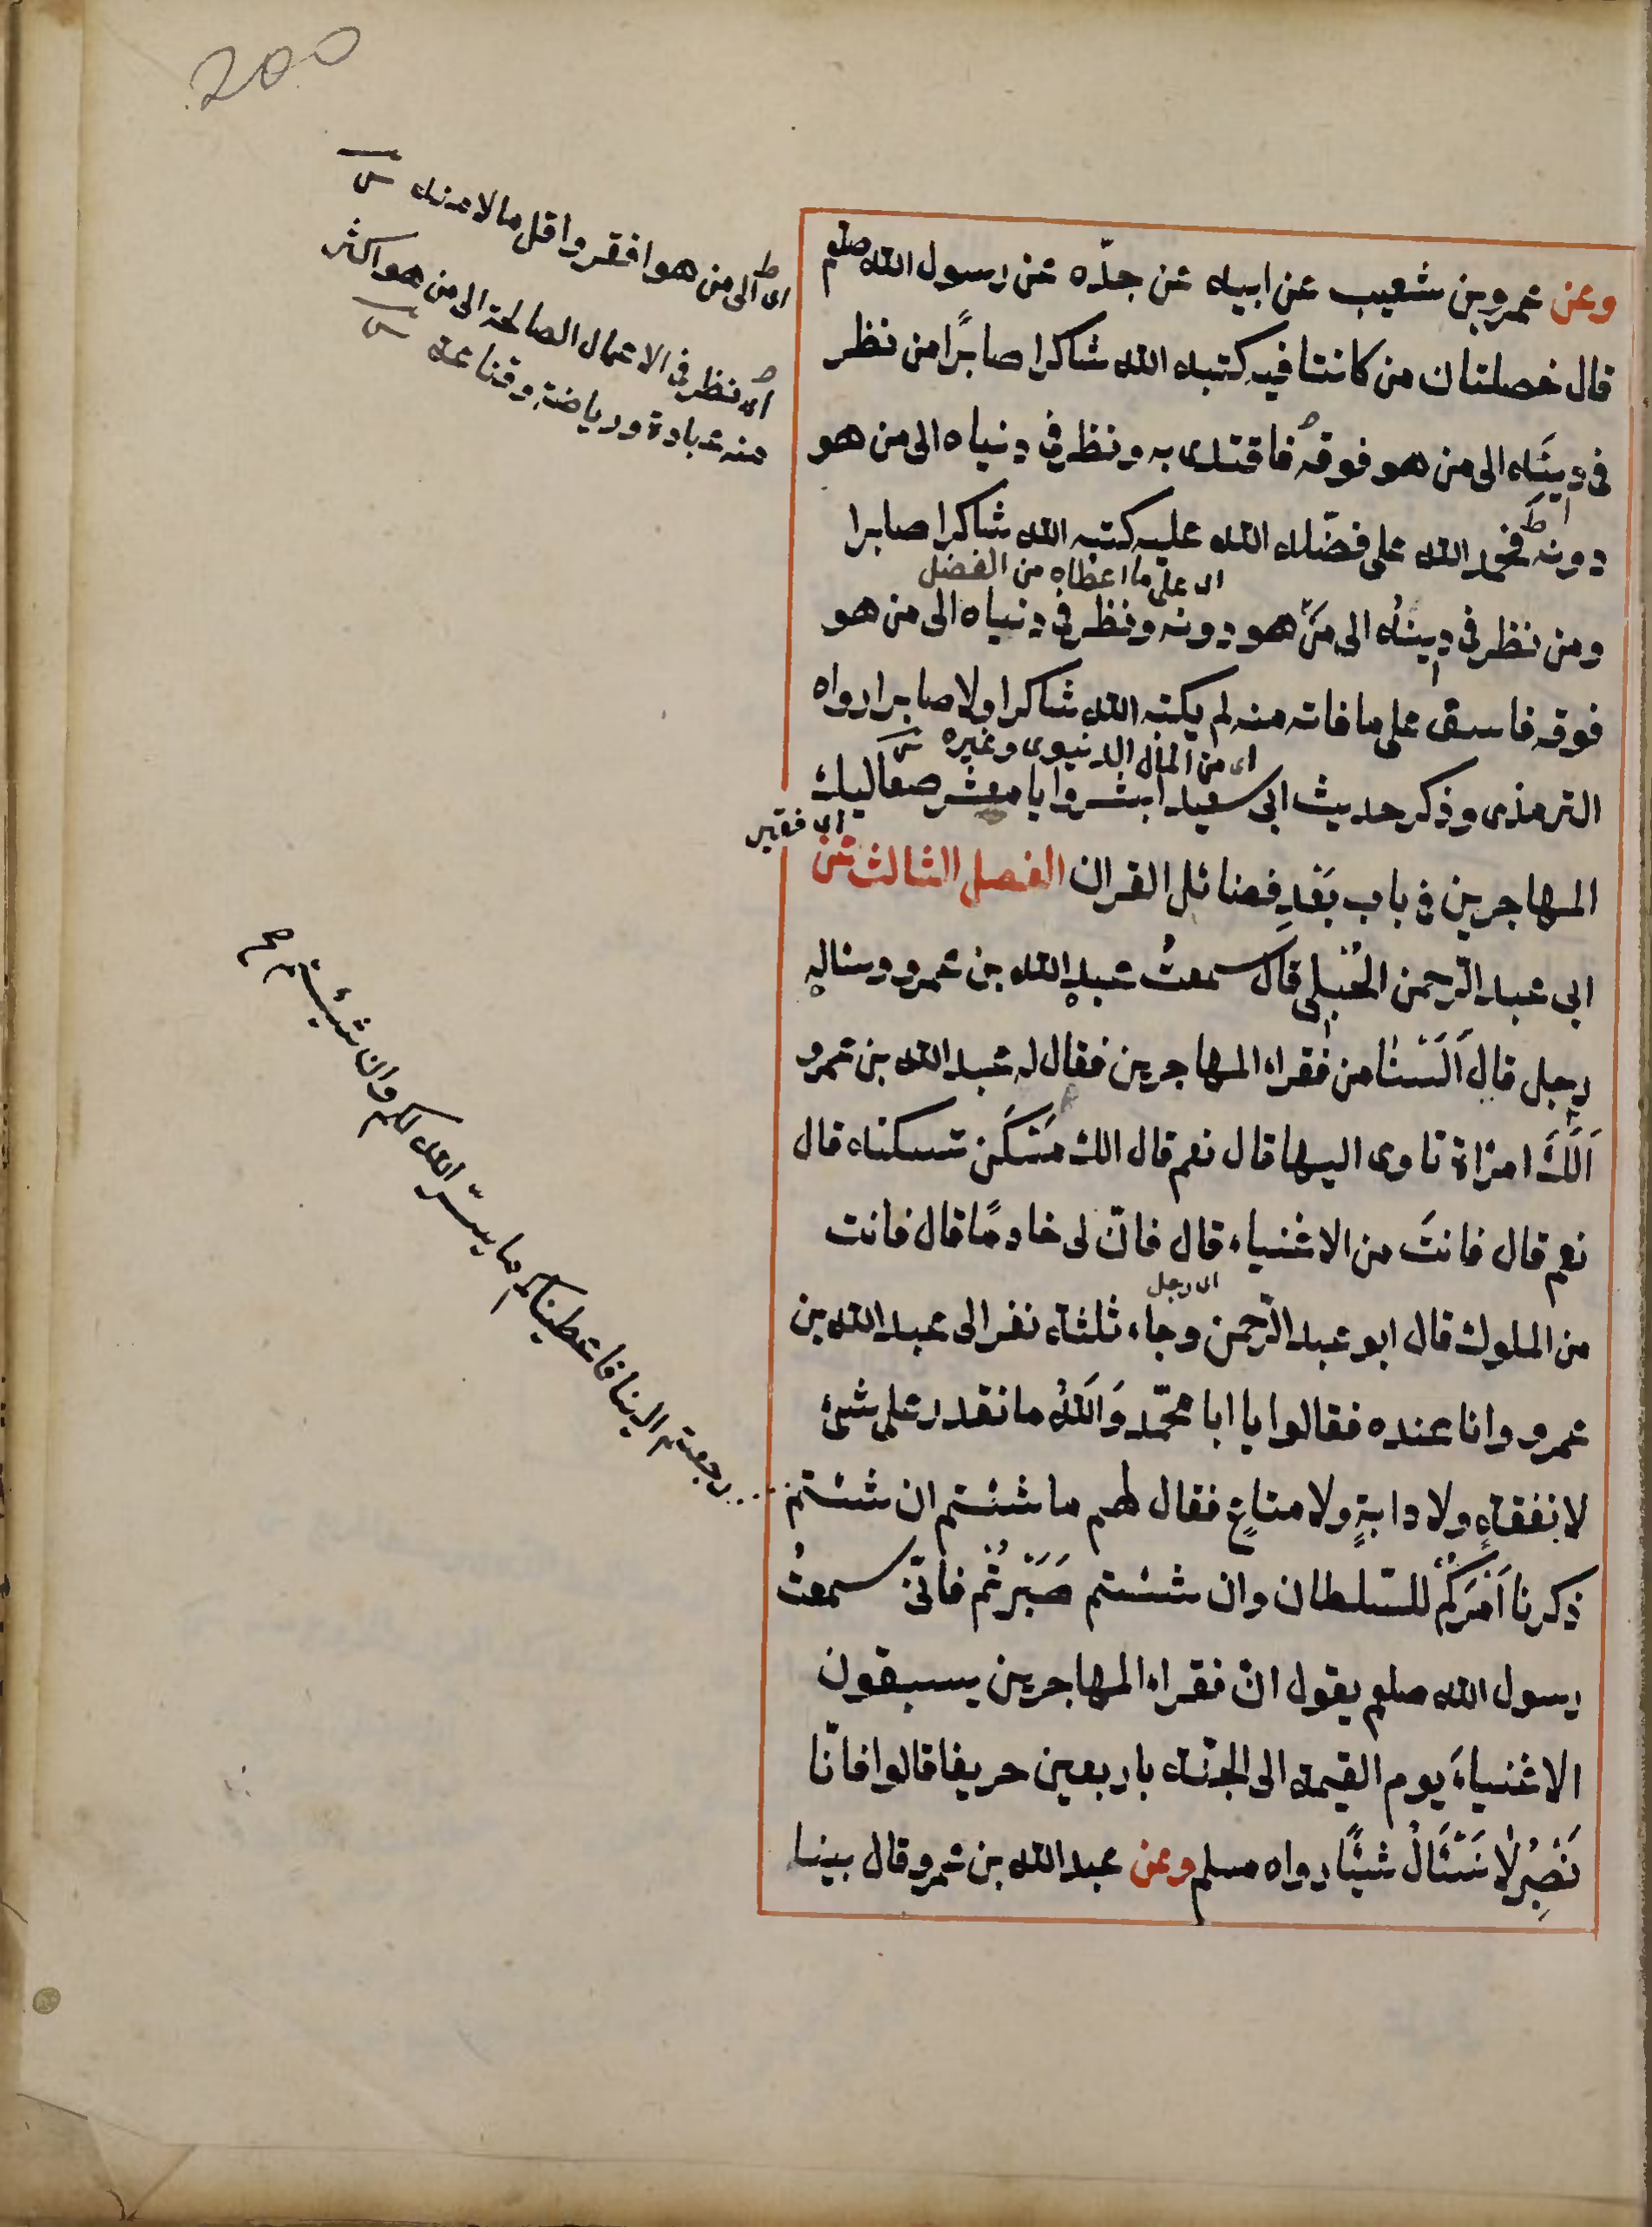 200
وعن عمرو بن شعيب عن ابيه عن جدّه عن رسول الله صلعم
قال خصلتان من كانتا فيه كتبه الله شاكرا صابرًا من نظر
في دينه الى من هو فوقه فاقتدى به ونظر في دنياه الى من هو
دونه فحمد الله على فضّله الله عليه كتبه الله شاكرا صابرا
اى على ما اعطاه من الفضل
ومن نظر في دينه الى من هو دونه ونظر في دنياه الى من هو
فوقه فاسف على ما فاته منه لم يكتبه الله شاكرا ولا صابرا رواه
اى من المال الدنيوى وغيره
الترمذى وذكر حديث ابي سعيد ابشروا يا معشر صعاليك
اى فقير
المهاجرين في باب بَعْدِ فضائل القران الفصل الثالث عن
ابي عبد الرّحمن الحُبلي قال سمعتُ عبد الله بن عمرو وساله
رجل قال اَلَسْنَا من فقراء المهاجرين فقال له عبد الله بن عمرو
اَلَكَ امرَاة تاوى اليها قال نعم قال الك مَسْكَن تسكنه قال
نعم قال فانتَ من الاغنياء قال فانّ لى خادمًا قال فانت
اى رجل
من الملوك قال ابو عبد الرّحمن وجاء ثلثة نفر الى عبد الله بن
عمرو وانا عنده فقالوا يا ابا محمّد وَاللهِ ما نقدر على شئ
لا نفقةٍ ولا دابةٍ ولا متاعٍ فقال لهم ما شئتم ان شئتم
ذكرنا اَمْرَكُمْ للسّلطان وان شئتم صَبَرْتُم فانّى سمعتُ
رسول الله صلعم يقول انّ فقراء المهاجرين يسبقون
الاغنياءَ يوم القيمة الى الجنّة باربعين حريفا قالوا فانّا
نَصْبِرُ لَا نَسْئَالُ شيئًا رواه مسلم وعن عبد الله بن عمرو قال بينا
اى الى من هو افقر واقل مالا منه
اى نظر في الاعمال الصالحة الى من هو اكثر
منه عبادة ورياضة وقناعة
رجعتم الينا فاعطيناكم ما يسّر الله لكم وان شئتم صح